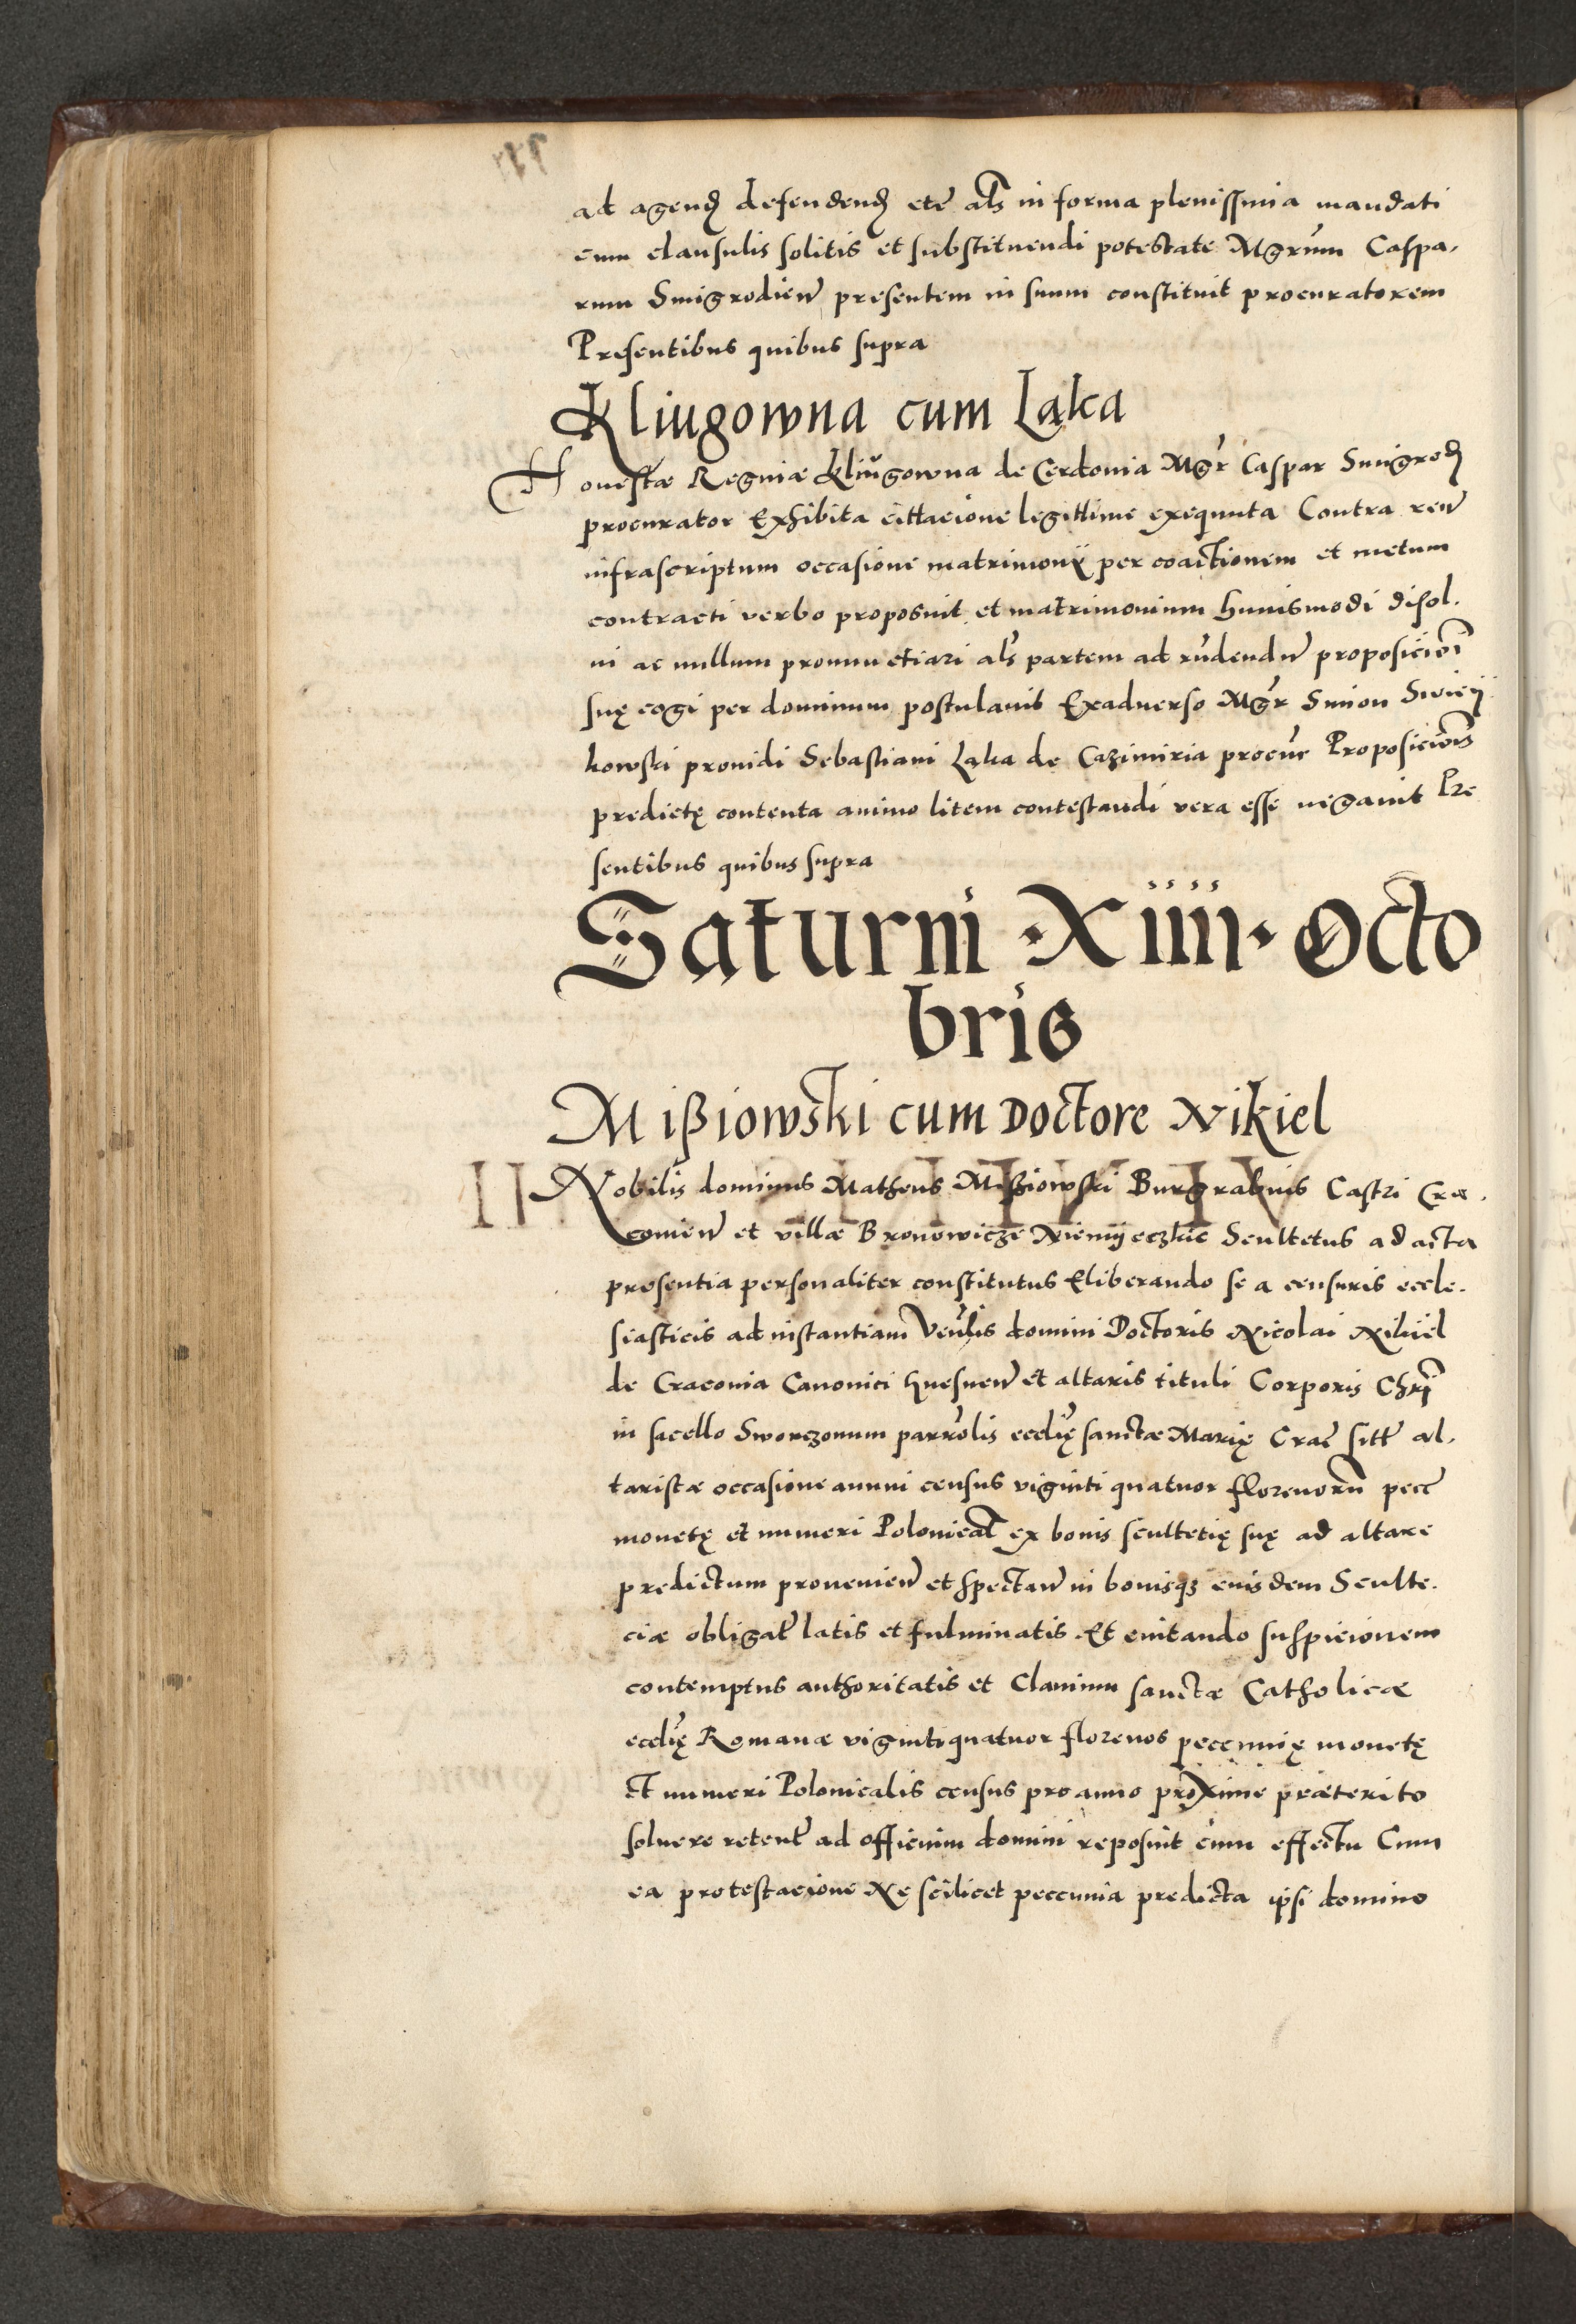 ad agend defendend etc als in forma plenissima mandati
cum clausulis solitis et substituendi potestate Mgrum Caspa,
rum Smigrodien presentem in suum constituit procuratorem
Presentibus quibus supra
Kliugowna cum Łąka
Honestæ Regniæ Kliŭgowna de Cerdonia Mgr Caspar Smigrod
procurator Exhibita cittacione legittime exequuta Contra reū
infrascriptum occasione matrimonij per coactionem et metum
contracti verbo proposuit et matrimonium huiusmodi disol,
ui ac nullum pronunctiari als partem ad rndendū proposicioni
suę cogi per dominum postulauit Exaduerso Mgr Simon
kowski prouidi Sebastiani Łąka de Cazimiria procur Proposicionis
predictę contenta animo litem contestandi vera esse negauit Pre
sentibus quibus supra
Saturni · Xiiii · Octo
bris
Mißiowski cum Doctore Nikiel
Nobilis dominus Matheus Mißiowski Burgrabius Castri Cra,
couien et villæ Bronowicze Niemijeczkie Scultetus ad acta
presentia personaliter constitutus Eliberando se a censuris eccle,
siasticis ad instantiam Venlis domini Doctoris Nicolai Nikiel
de Cracouia Canonici et altaris tituli Corporis Chri
in sacello Sworczonum parrolis ecclię sanctæ Marię Crac sitt al,
taristæ occasione annui census viginti quatuor florenorū pecc
monetę et numeri Polonical ex bonis scultetię suę ad altare
predictum prouenien et spectan in bonisq; eiusdem Sculte,
ciæ obligat latis et fulminatis Et euitando suspicionem
contemptus authoritatis et Clauium sanctæ Catholicæ
ecclię Romanæ vigintiquatuor florenos peccunię monetę
et numeri Polonicalis census pro anno proxime præterito
soluere retent ad officium domini reposuit cum effectu Cum
ea protestacione Ne scilicet peccunia predicta ipsi domino